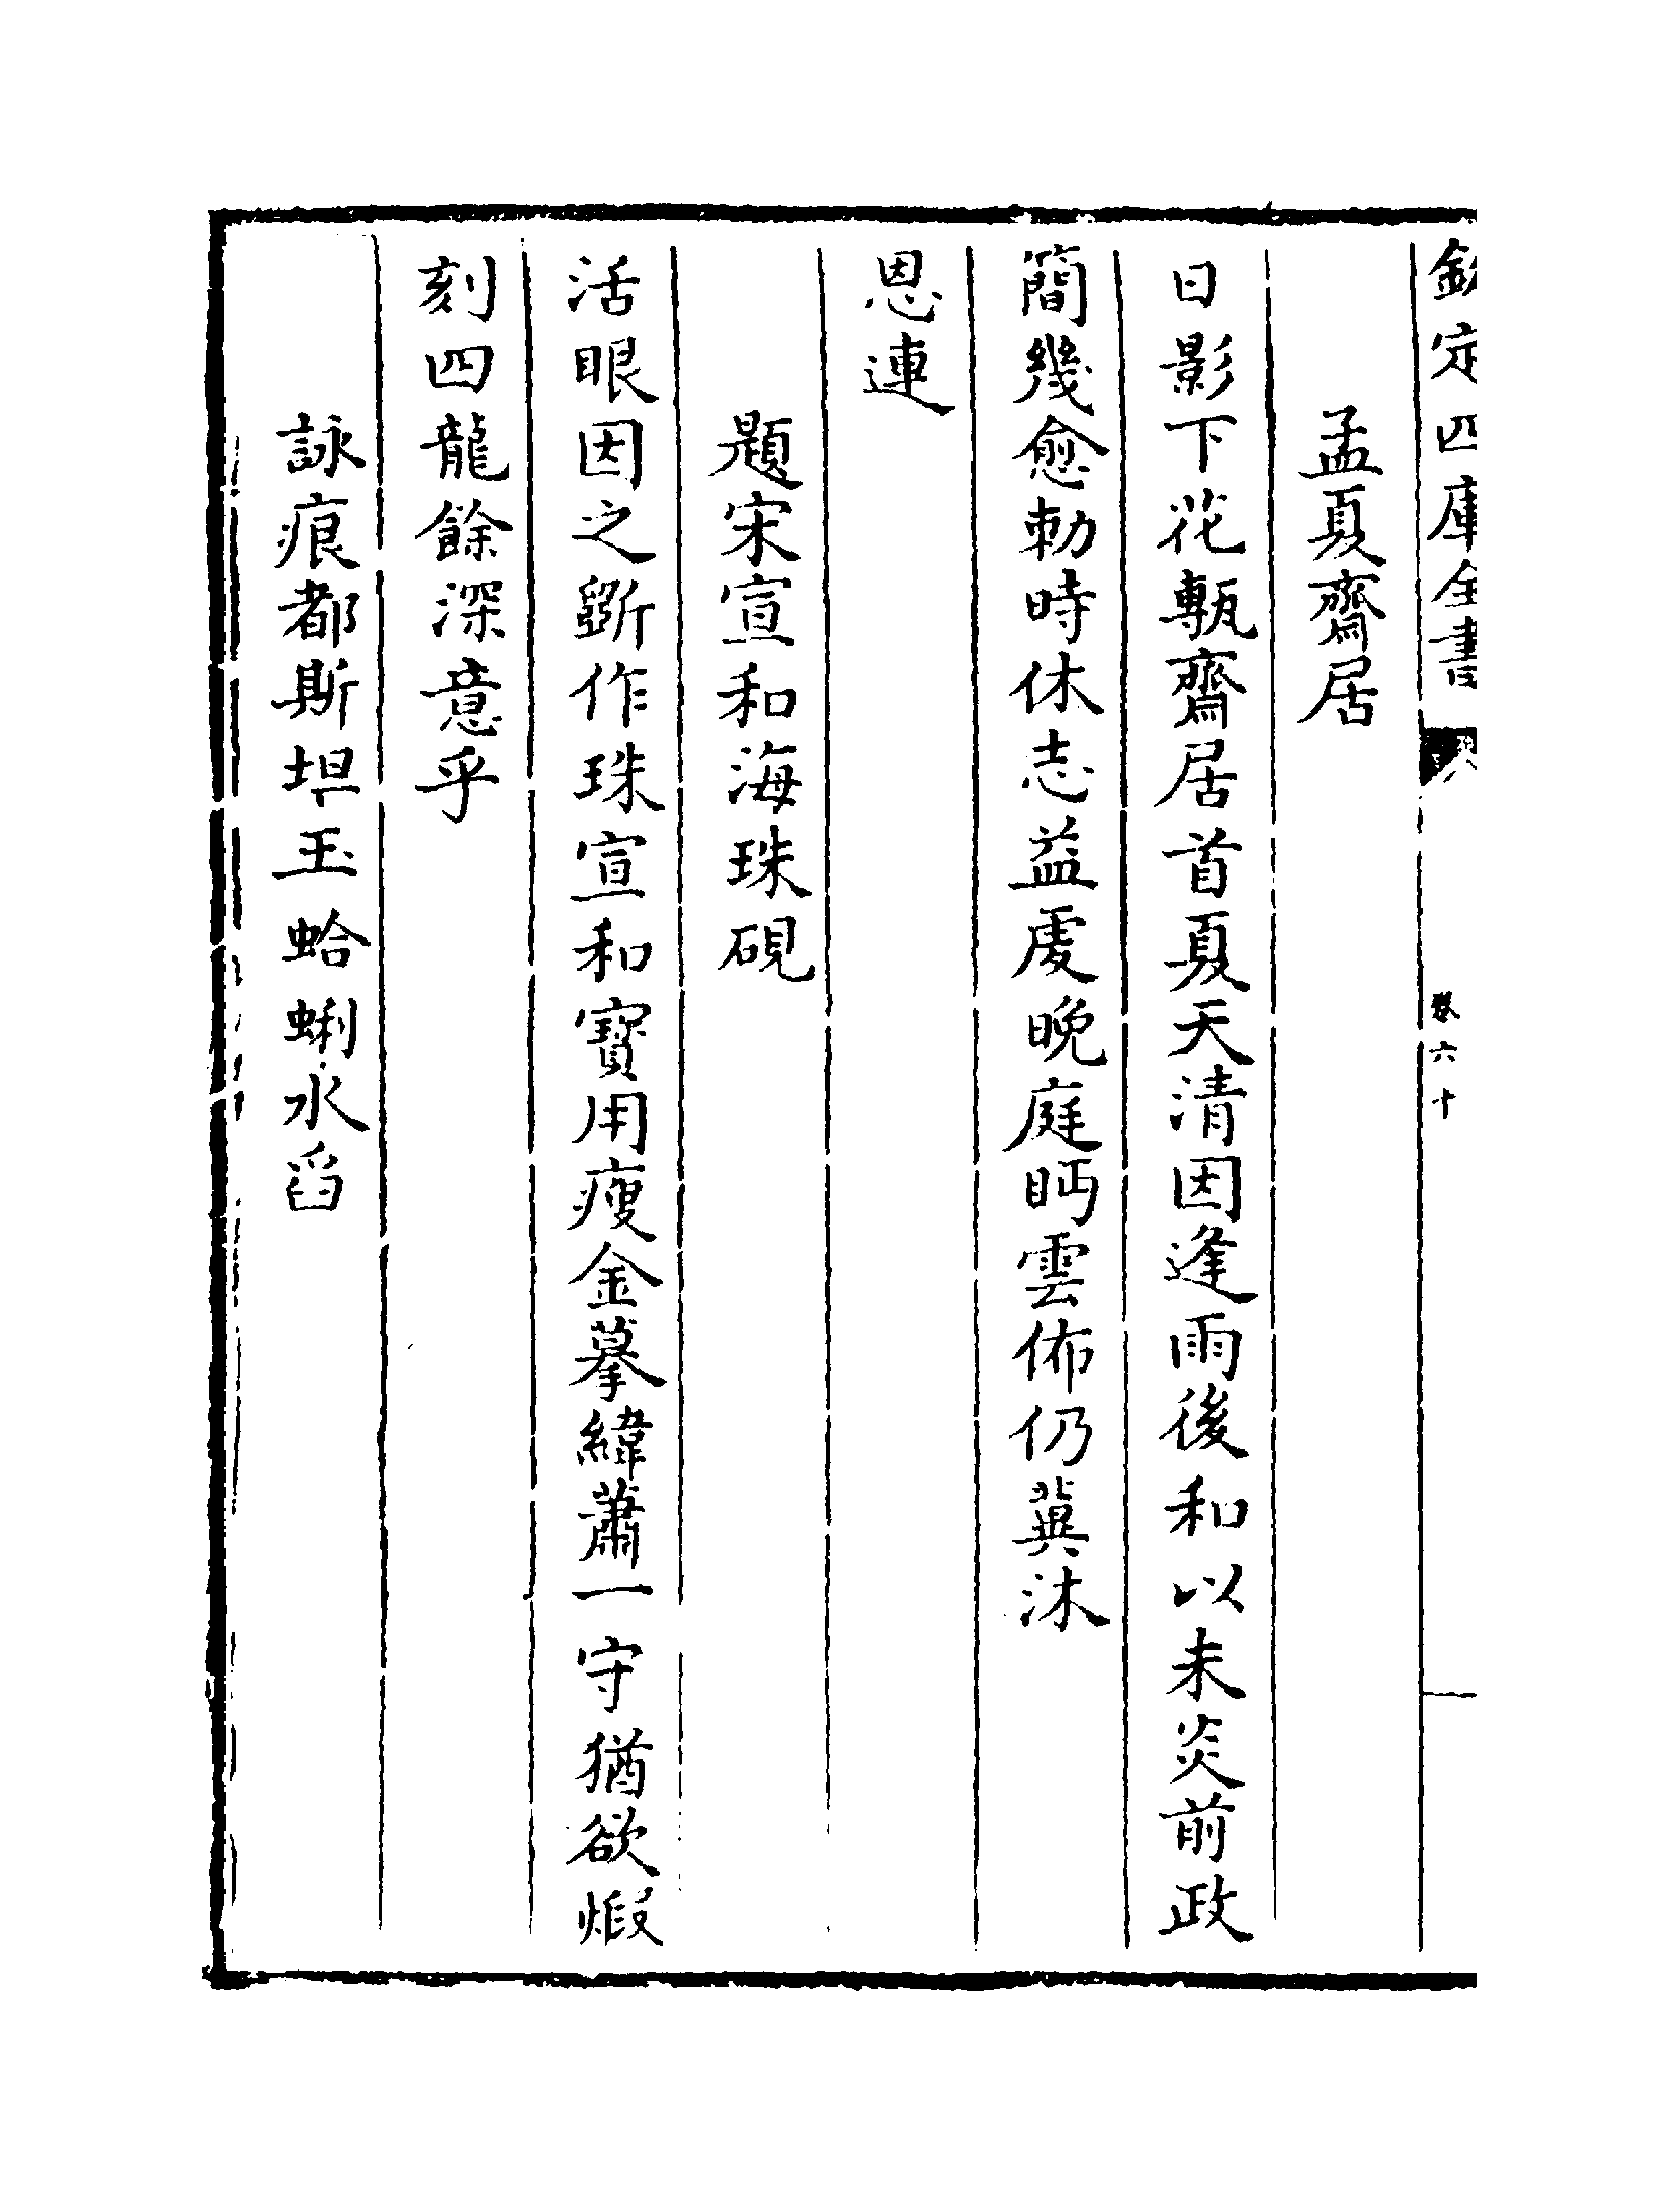 欽定四庫全書
卷六十
孟夏齋居
日影下花甎齋居首夏天清因逢雨後和以未炎前政
簡幾愈勅時休志益虔晚庭眄雲佈仍冀沐
恩連
題宋宣和海珠硯
活眼因之斵作珠宣和寳用瘦金摹緯蕭一守猶欲煆
刻四龍餘深意乎
詠痕都斯坦玉蛤蜊水舀